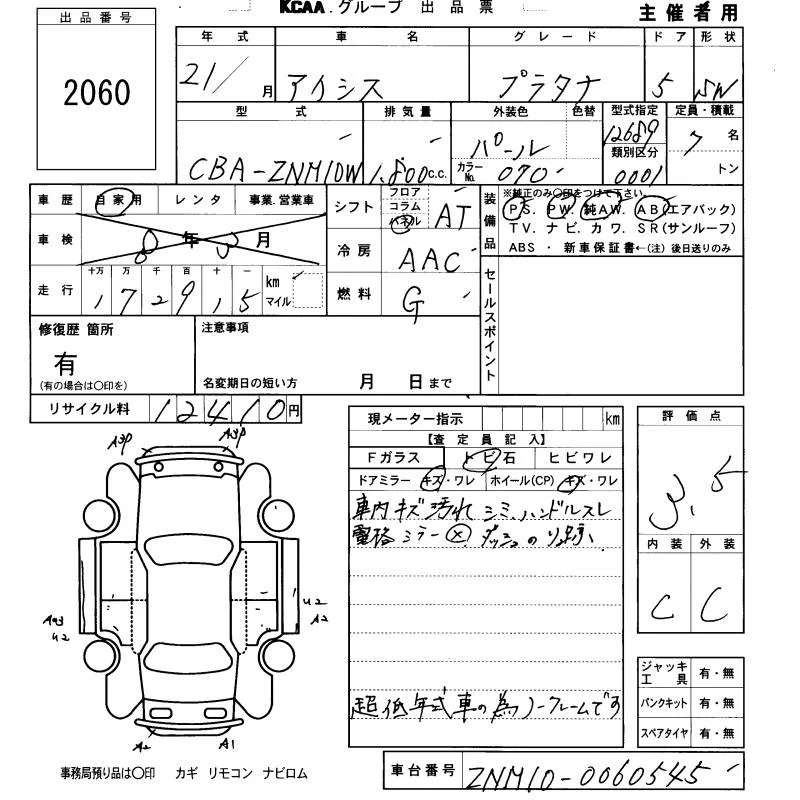 KCAA.グループ 出品票
主催者用
出品番号
2060
年式 車名 グレード ドア 形状
21/ 月 アイシス プラタナ 5 SW
型式 排気量 外装色 色替 型式指定 定員・積載
CBA-ZNM10W 1.800c.c. パール カラーNo. 070 12689 類別区分 0001 7名 トン
車歴 自家用 レンタ 事業.営業車
車検 年 月
走行 十万 万 千 百 十 一 km マイル
172915
シフト フロア コラム パネル AT
冷房 AAC
燃料 G
装備品 ※純正のみ○印をつけて下さい。
PS. PW. 純AW. AB(エアバック)
TV. ナビ. カワ. SR(サンルーフ)
ABS ・ 新車保証書←(注) 後日送りのみ
セールスポイント
修復歴 箇所
有
(有の場合は○印を)
注意事項
名変期日の短い方 月 日まで
リサイクル料 12410円
現メーター指示 km
【査定員記入】
Fガラス トビ石 ヒビワレ
ドアミラー キズ・ワレ ホイール(CP) キズ・ワレ
車内キズ汚れ シミ、ハンドルスレ
電格ミラー× ダッシュの
超低年式車の為ノークレームです
評価点
3.5
内装 外装
C C
ジャッキ工具 有・無
パンクキット 有・無
スペアタイヤ 有・無
A3P A3P
U2
A2
U2
A2 A1
事務局預り品は○印 カギ リモコン ナビロム
車台番号 ZNM10-0060545